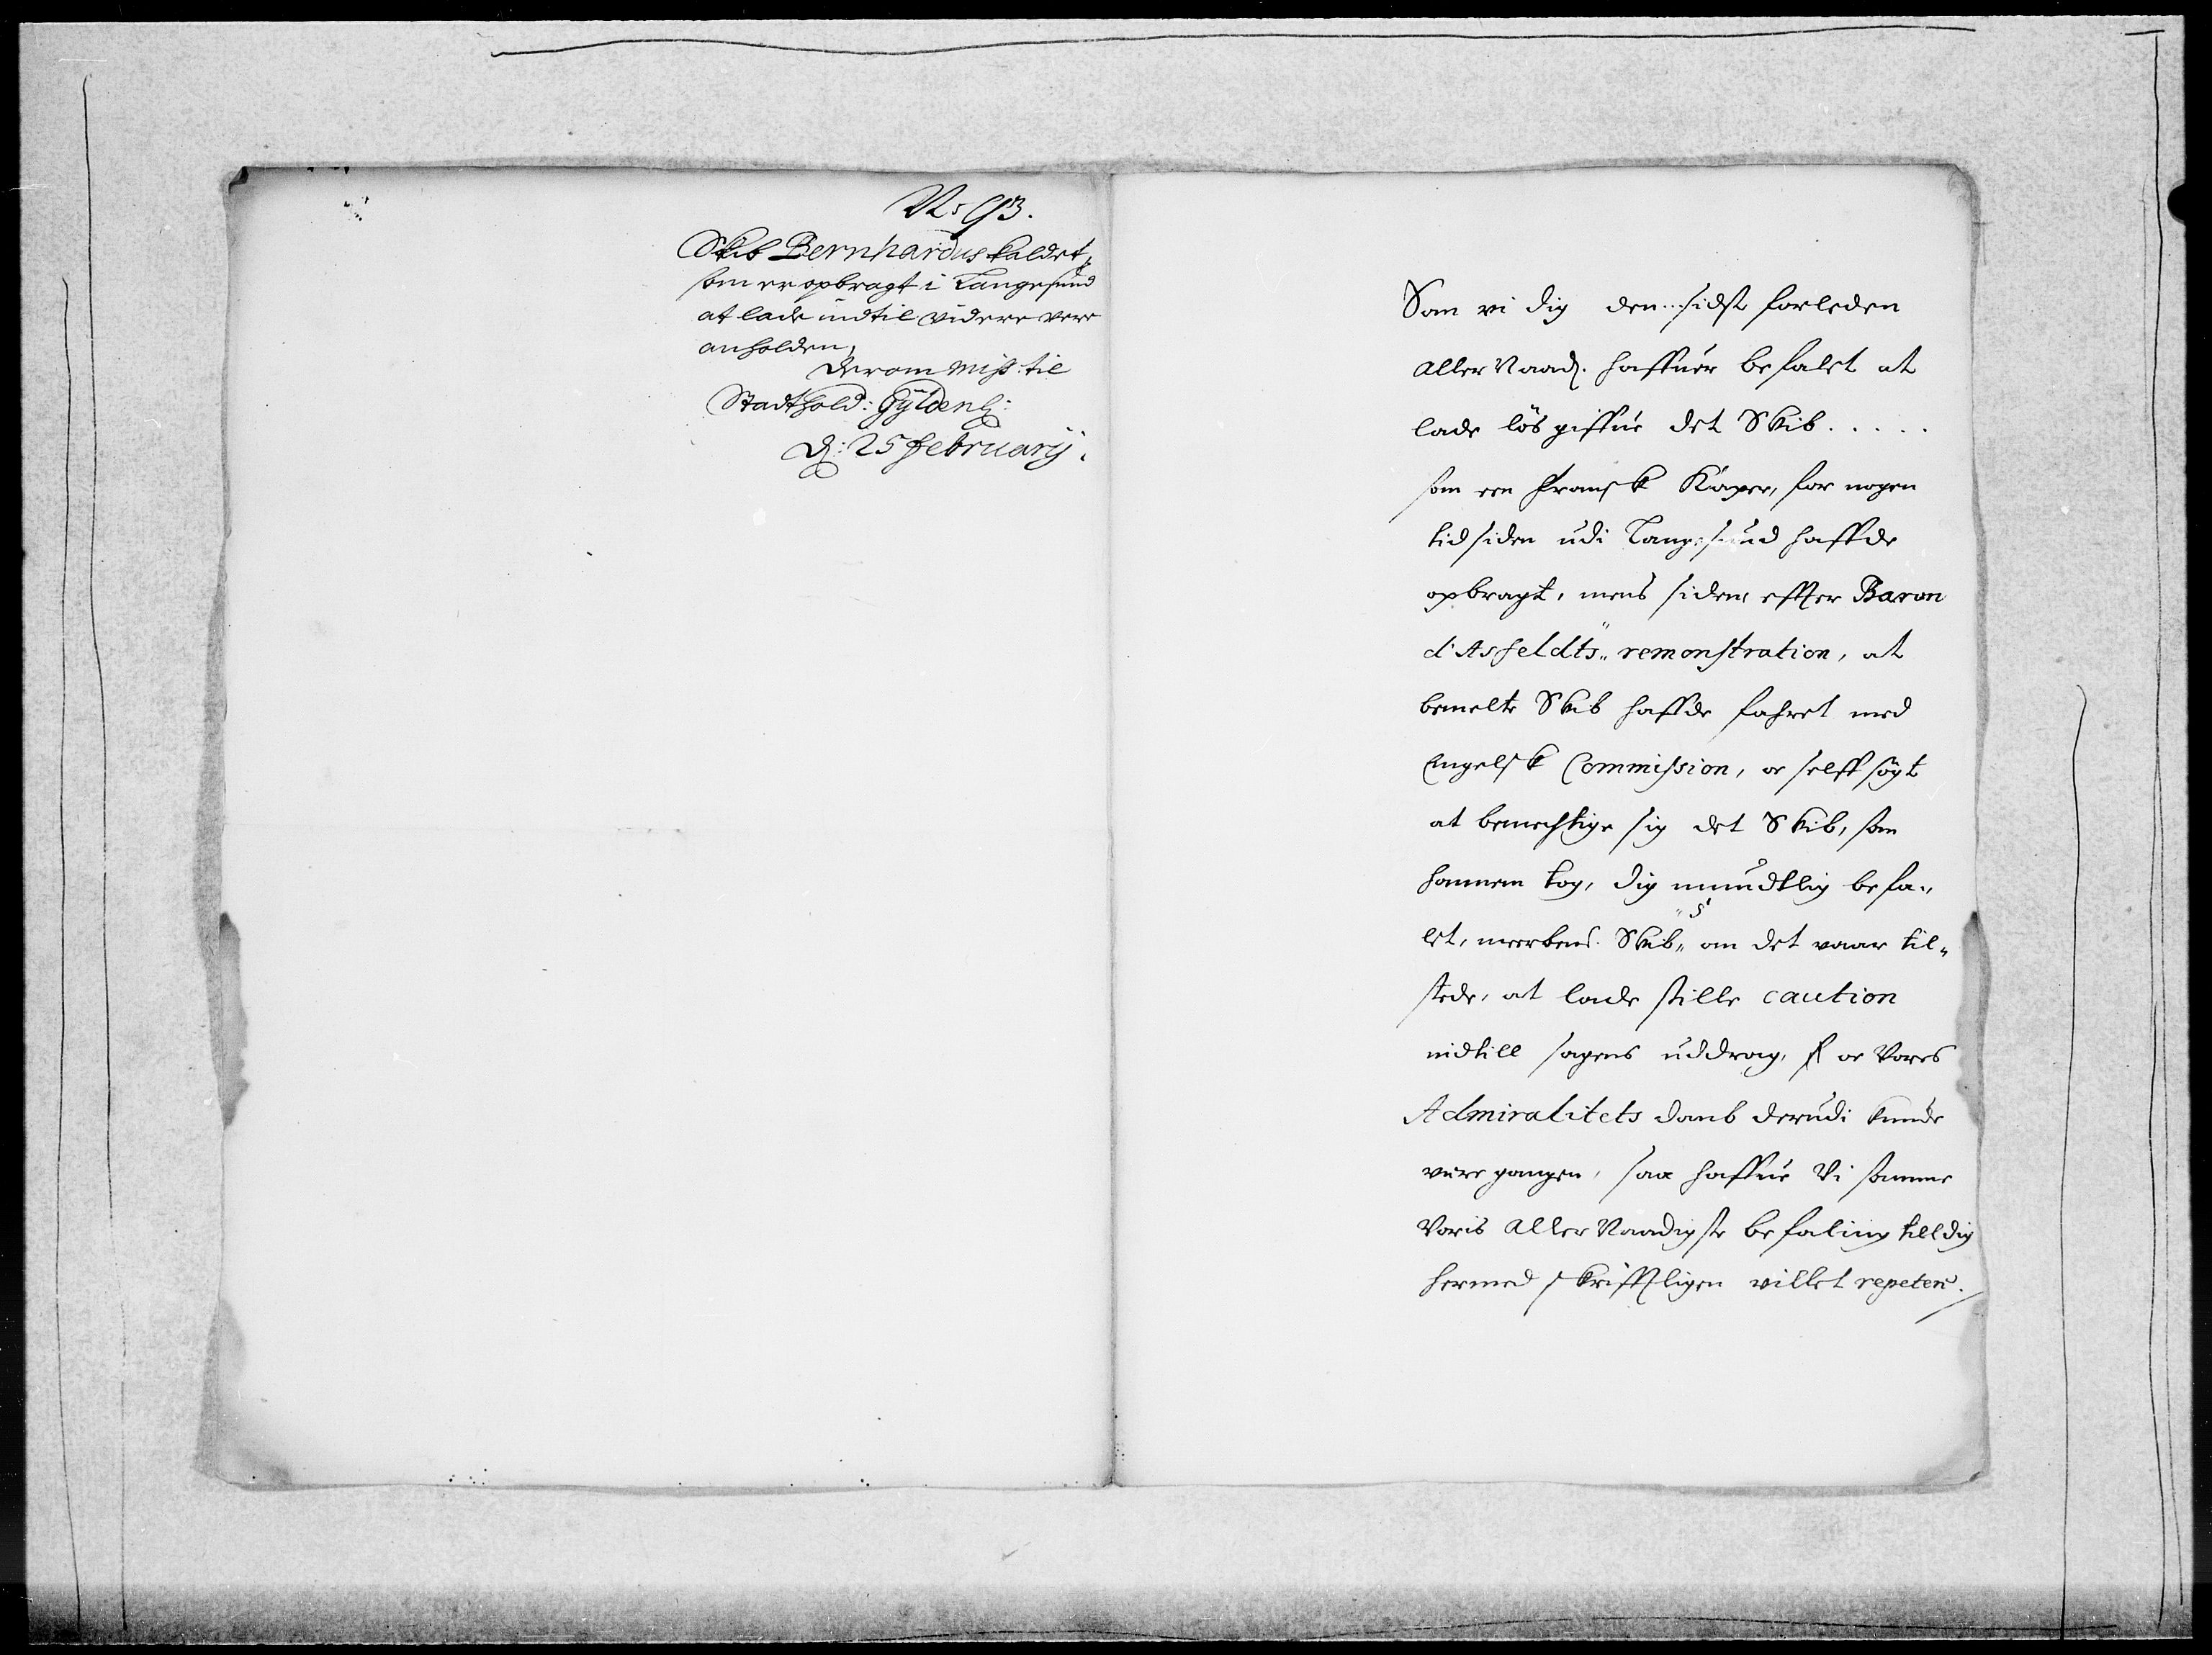 N: 93.
Skib Bernhardus kaldet,
som er opbragt i Langesund
at lade indtil videre vere
anholden,
Derom miss: til
Stadthold: Gyldenl:
D: 25 February.
Som vi dig den... sidst forleden
aller Naad. haffuer befalet at
lade lös giffue det Skib.....
som een fransk Kåper, for nogen
tid siden udi Langesund haffde
opbragt, mens siden effter Baron
d'Asfeldts remonstration, at
bemelte Skib haffde fahret med
Engelsk Commission, oc self sögt
at bemechtige sig det Skib, som
hannem tog, dig mundtlig befa-
let, Skib,, om det vaar til-
stede, at lade stille caution
indtill sagens uddrag, oc Vores
Admiralitets domb derudi kunde
vere gangen, saa haffue Vi samme
Voris Aller Naadigste befaling till dig
hermed skrifftligen villet repetere.